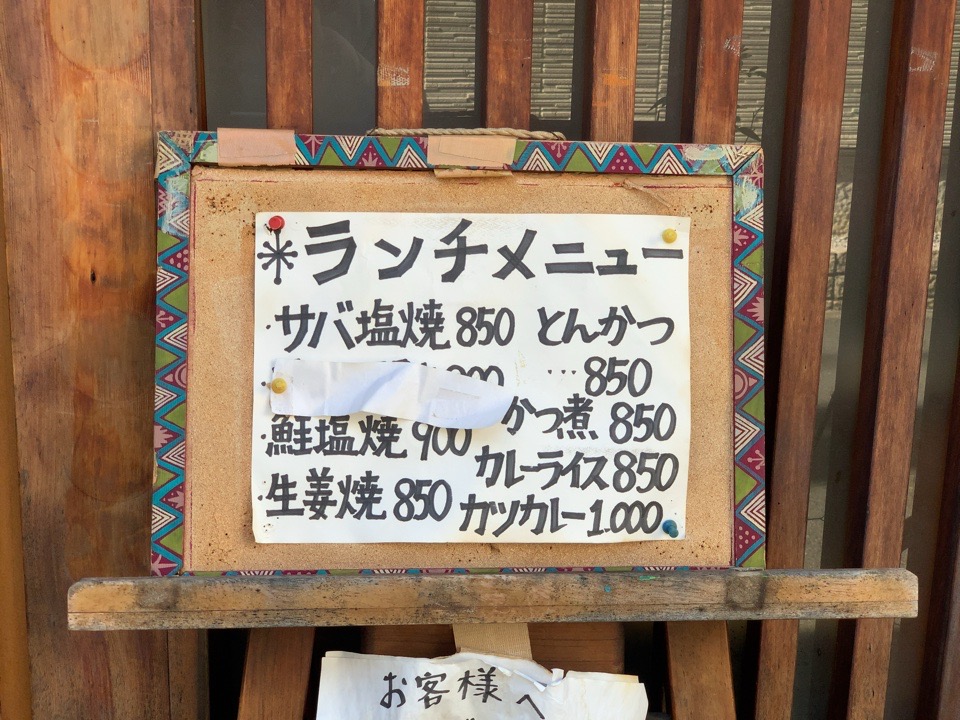 *ランチメニュー
・サバ塩焼 850
・鮭塩焼 900
・生姜焼 850
とんかつ
…850
かつ煮 850
カレーライス 850
カツカレー 1.000
お客様へ